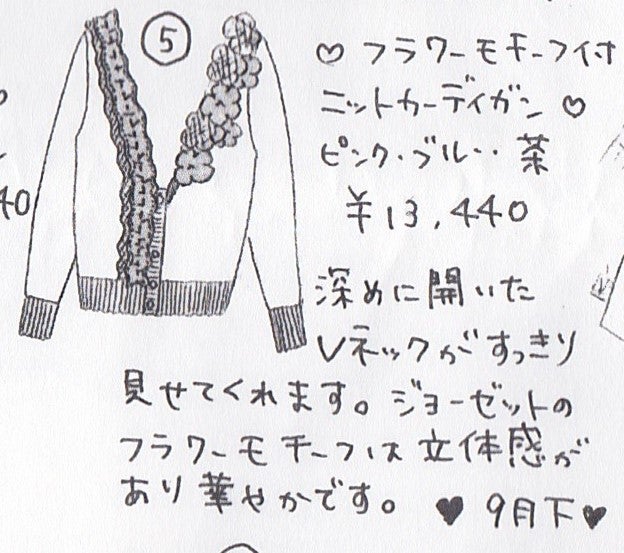 ⑤
♡ フラワーモチーフ付
ニットカーディガン ♡
ピンク・ブルー・茶
¥13,440
深めに開いた
Vネックがすっきり
見せてくれます。ジョーゼットの
フラワーモチーフは立体感が
あり華やかです。 ♥ 9月下 ♥
40